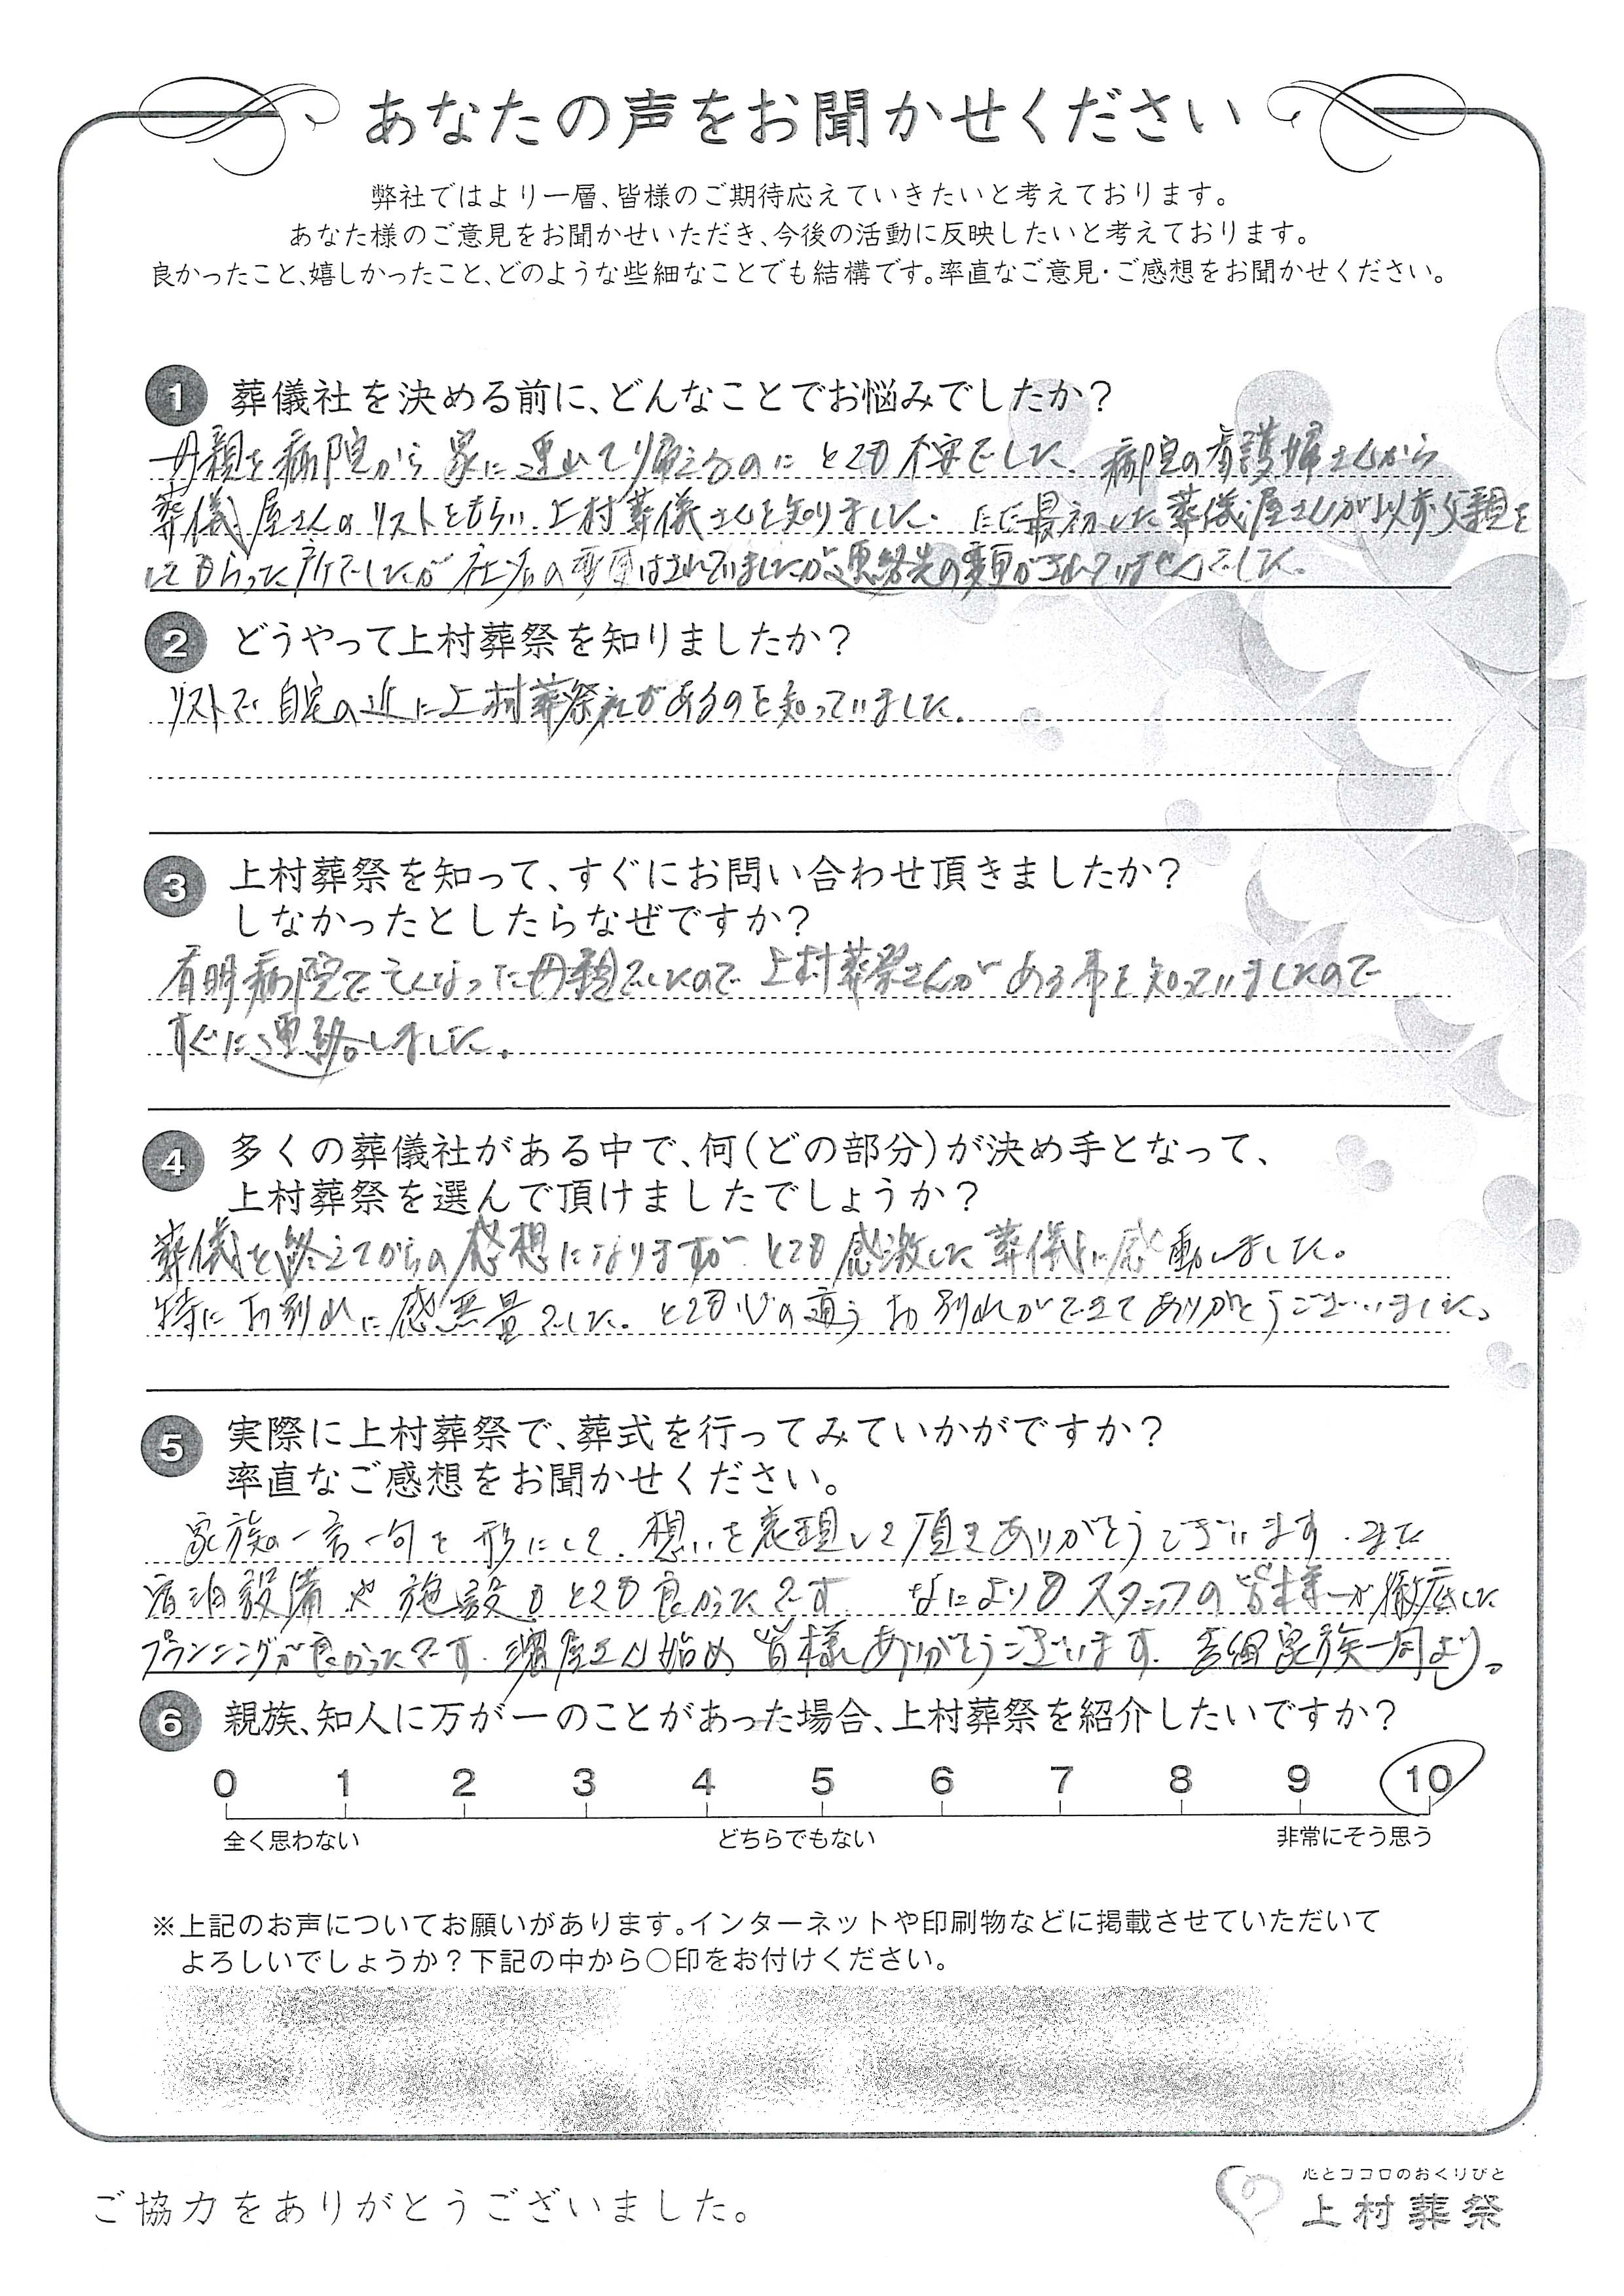 あなたの声をお聞かせください
弊社ではより一層、皆様のご期待応えていきたいと考えております。
あなた様のご意見をお聞かせいただき、今後の活動に反映したいと考えております。
良かったこと、嬉しかったこと、どのような些細なことでも結構です。率直なご意見・ご感想をお聞かせください。
1 葬儀社を決める前に、どんなことでお悩みでしたか?
母親を病院から家に連れて帰えるのにとても不安でした。病院の看護婦さんから
葬儀屋さんのリストをもらい、上村葬儀さんを知りました。ただ最初した葬儀屋さんが以前父親を
してもらった所でしたが社名の変更はされていましたが連絡先の変更がされていませんでした。
2 どうやって上村葬祭を知りましたか?
リストで自宅の近に上村葬祭社があるのを知っていました。
3 上村葬祭を知って、すぐにお問い合わせ頂きましたか?
しなかったとしたらなぜですか?
有明病院で亡くなった母親でしたので上村葬祭さんがある事を知っていましたので
すぐに連絡しました。
4 多くの葬儀社がある中で、何(どの部分)が決め手となって、
上村葬祭を選んで頂けましたでしょうか?
葬儀を終えてからの感想になりますが とても感激した葬儀に感動しました。
特にお別れに感無量でした。とても心の通うお別れができてありがとうございました。
5 実際に上村葬祭で、葬式を行ってみていかがですか?
率直なご感想をお聞かせください。
家族の一言一句を形にして、想いを表現して頂きありがとうございます。また
宿泊設備や施設もとても良かったです。なによりもスタッフの皆様が徹底した
プランニングが良かったです。さん始め皆様ありがとうございます。家族一同より。
6 親族、知人に万が一のことがあった場合、上村葬祭を紹介したいですか?
0 1 2 3 4 5 6 7 8 9 10
全く思わない どちらでもない 非常にそう思う
※上記のお声についてお願いがあります。インターネットや印刷物などに掲載させていただいて
よろしいでしょうか?下記の中から○印をお付けください。
ご協力をありがとうございました。
心とココロのおくりびと
上村葬祭